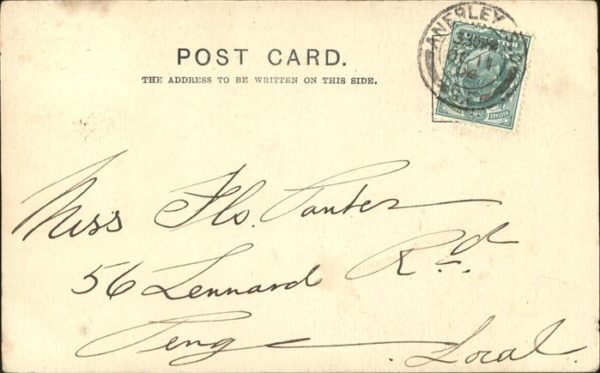 POST CARD.
THE ADDRESS TO BE WRITTEN ON THIS SIDE.
ANERLEY
Miss Flo. Panter
56 Lennard Rd
Penge Local.